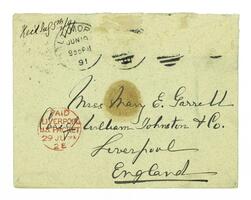 JUN 19
91
Miss Mary E. Garrett
William Johnston & Co.
Liverpool
England
PAID
LIVERPOOL
U.S. PACKET
29 JU 91
2 E